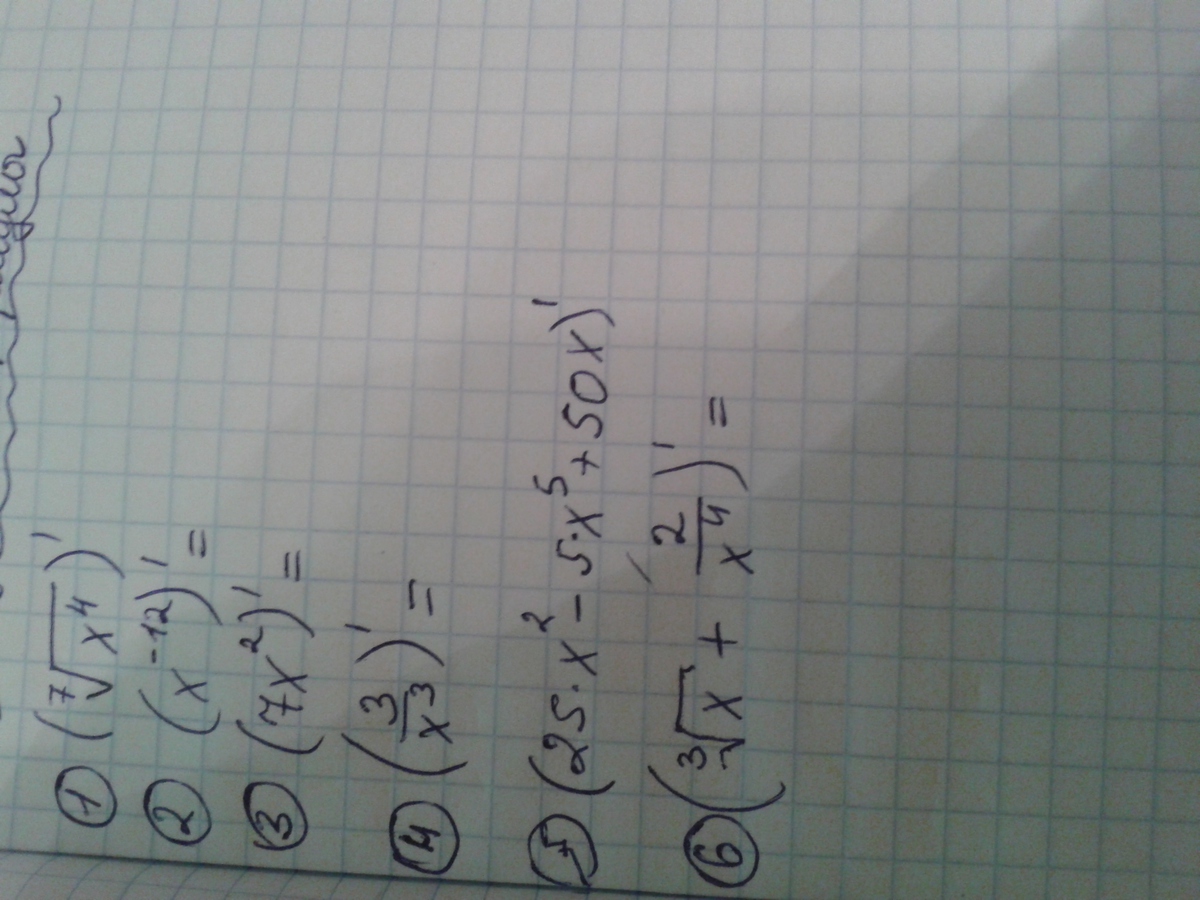 ① (⁷√x⁴)'
② (x⁻¹²)' =
③ (7x²)' =
④ (3/x³)' =
⑤ (25·x² - 5·x⁵ + 50x)'
⑥ (³√x + 2/x⁴)' =